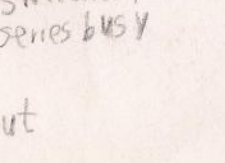 series busy
ut